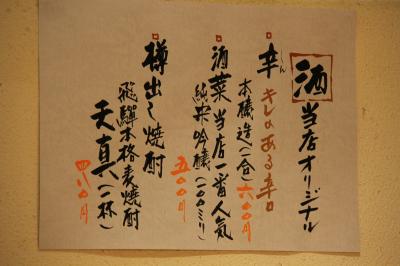 酒 当店オリジナル
辛 キレのある辛口
ん
本醸造(二合)六〇〇円
酒菜 当店一番人気
純米吟醸(一〇〇ミリ)
五〇〇円
樽出し焼酎
飛騨本格麦焼酎
天真(一杯)
四八〇円